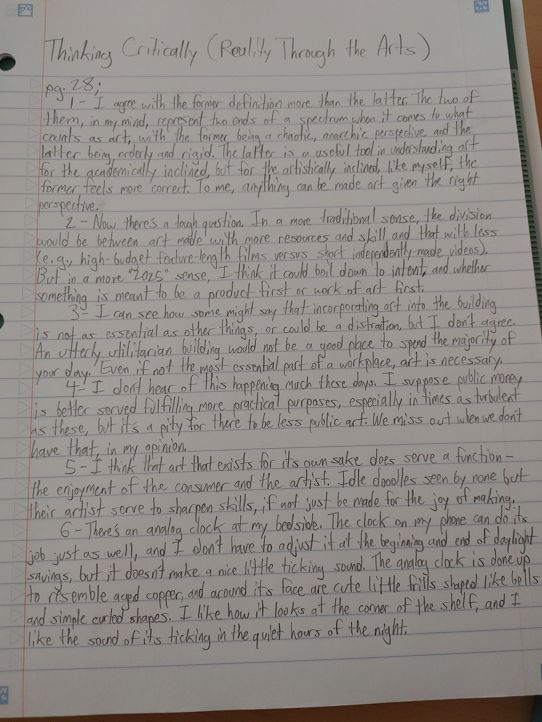 Thinking Critically (Reality Through the Arts)
pg. 28;
1- I agree with the former definition more than the latter. The two of
them, in my mind, represent two ends of a spectrum when it comes to what
counts as art, with the former being a chaotic, anarchic perspective and the
latter being orderly and rigid. The latter is a useful tool in understanding art
for the academically inclined, but for the artistically inclined, like myself, the
former feels more correct. To me, anything can be made art given the right
perspective.
2- Now there's a tough question. In a more traditional sense, the division
would be between art made with more resources and skill and that with less
(e.g., high-budget feature-length films versus short independently-made videos).
But in a more "2025" sense, I think it could boil down to intent, and whether
something is meant to be a product first or work of art first.
3- I can see how some might say that incorporating art into the building
is not as essential as other things, or could be a distration, but I don't agree.
An utterly utilitarian building would not be a good place to spend the majority of
your day. Even if not the most essential part of a workplace, art is necessary.
4- I don't hear of this happening much these days. I suppose public money
is better served fulfilling more practical purposes, especially in times as turbulent
as these, but it's a pity for there to be less public art. We miss out when we don't
have that, in my opinion.
5- I think that art that exists for its own sake does serve a function-
the enjoyment of the consumer and the artist. Idle doodles seen by none but
their artist serve to sharpen skills, if not just be made for the joy of making.
6- There's an analog clock at my bedside. The clock on my phone can do its
job just as well, and I don't have to adjust it at the beginning and end of daylight
savings, but it doesn't make a nice little ticking sound. The analog clock is done up
to resemble aged copper, and around its face are cute little frills shaped like bells
and simple curled shapes. I like how it looks at the corner of the shelf, and I
like the sound of its ticking in the quiet hours of the night.